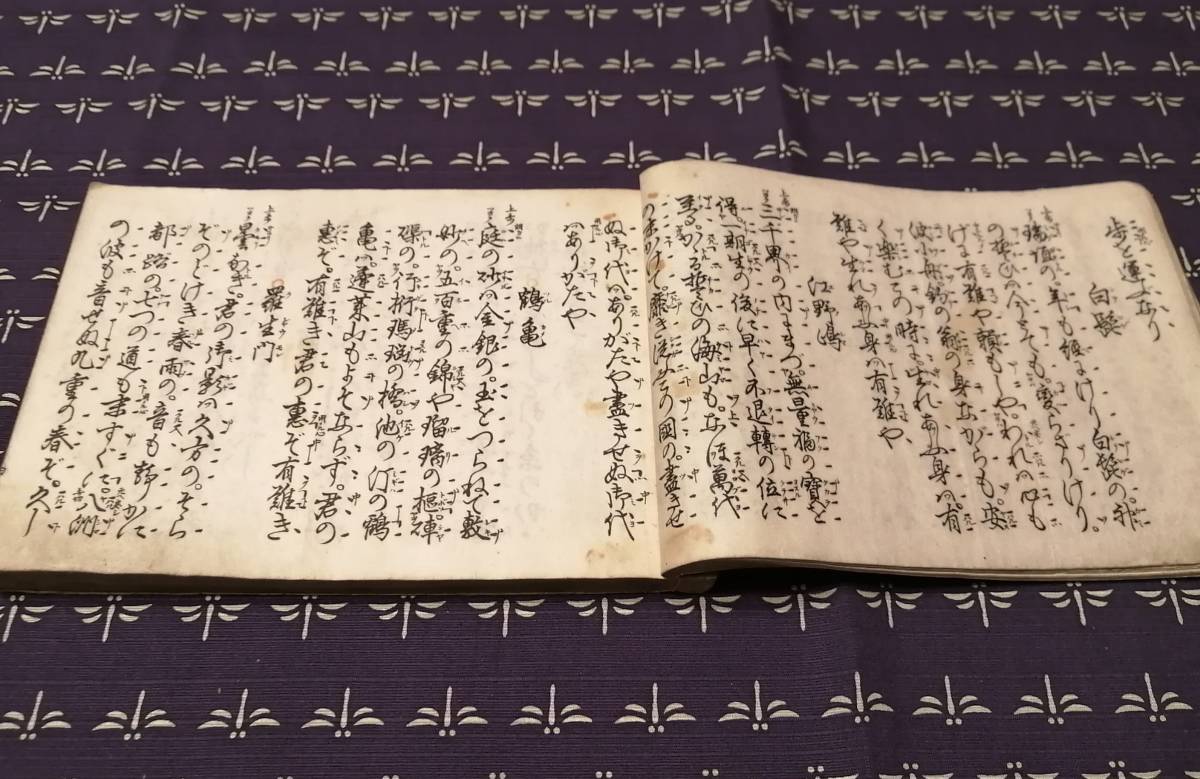 歩を運ぶなり、
白髭
瑞垣の年も經にけり白髭の。神
の誓ひの今とても。變らざりけり。
げに有難や頼もしや。われの心も
波小舟釣の翁の身ながらも。安
く樂むこの時に生れあふ身の有
難や生れあふ身の有難や、
江野島
三千界の内にまつ。無量福の寶を
得。一期生の後に早く不退轉の位に
至る。かゝる誓ひの海山も。なほ萬代
の末かけて。靡き從ふこの國の。盡きせ
ぬ御代のありがたや盡きせぬ御代
のありがたや
鶴亀
庭の砂の金銀の。玉をつらねて敷
妙の。五百重の錦や瑠璃の樞硨
磲の。行桁瑪瑙の橋。池の汀の鶴
亀は。蓬莱山もよそならず。君の
惠ぞ。有難き君の惠ぞ有難き、
羅生門
曇なき。君の御影の久方の。そら
ぞのどけき春雨の。音も靜かに
都路の。七つの道も末すぐに。八洲
の波も音せぬ九重の春ぞ。久し